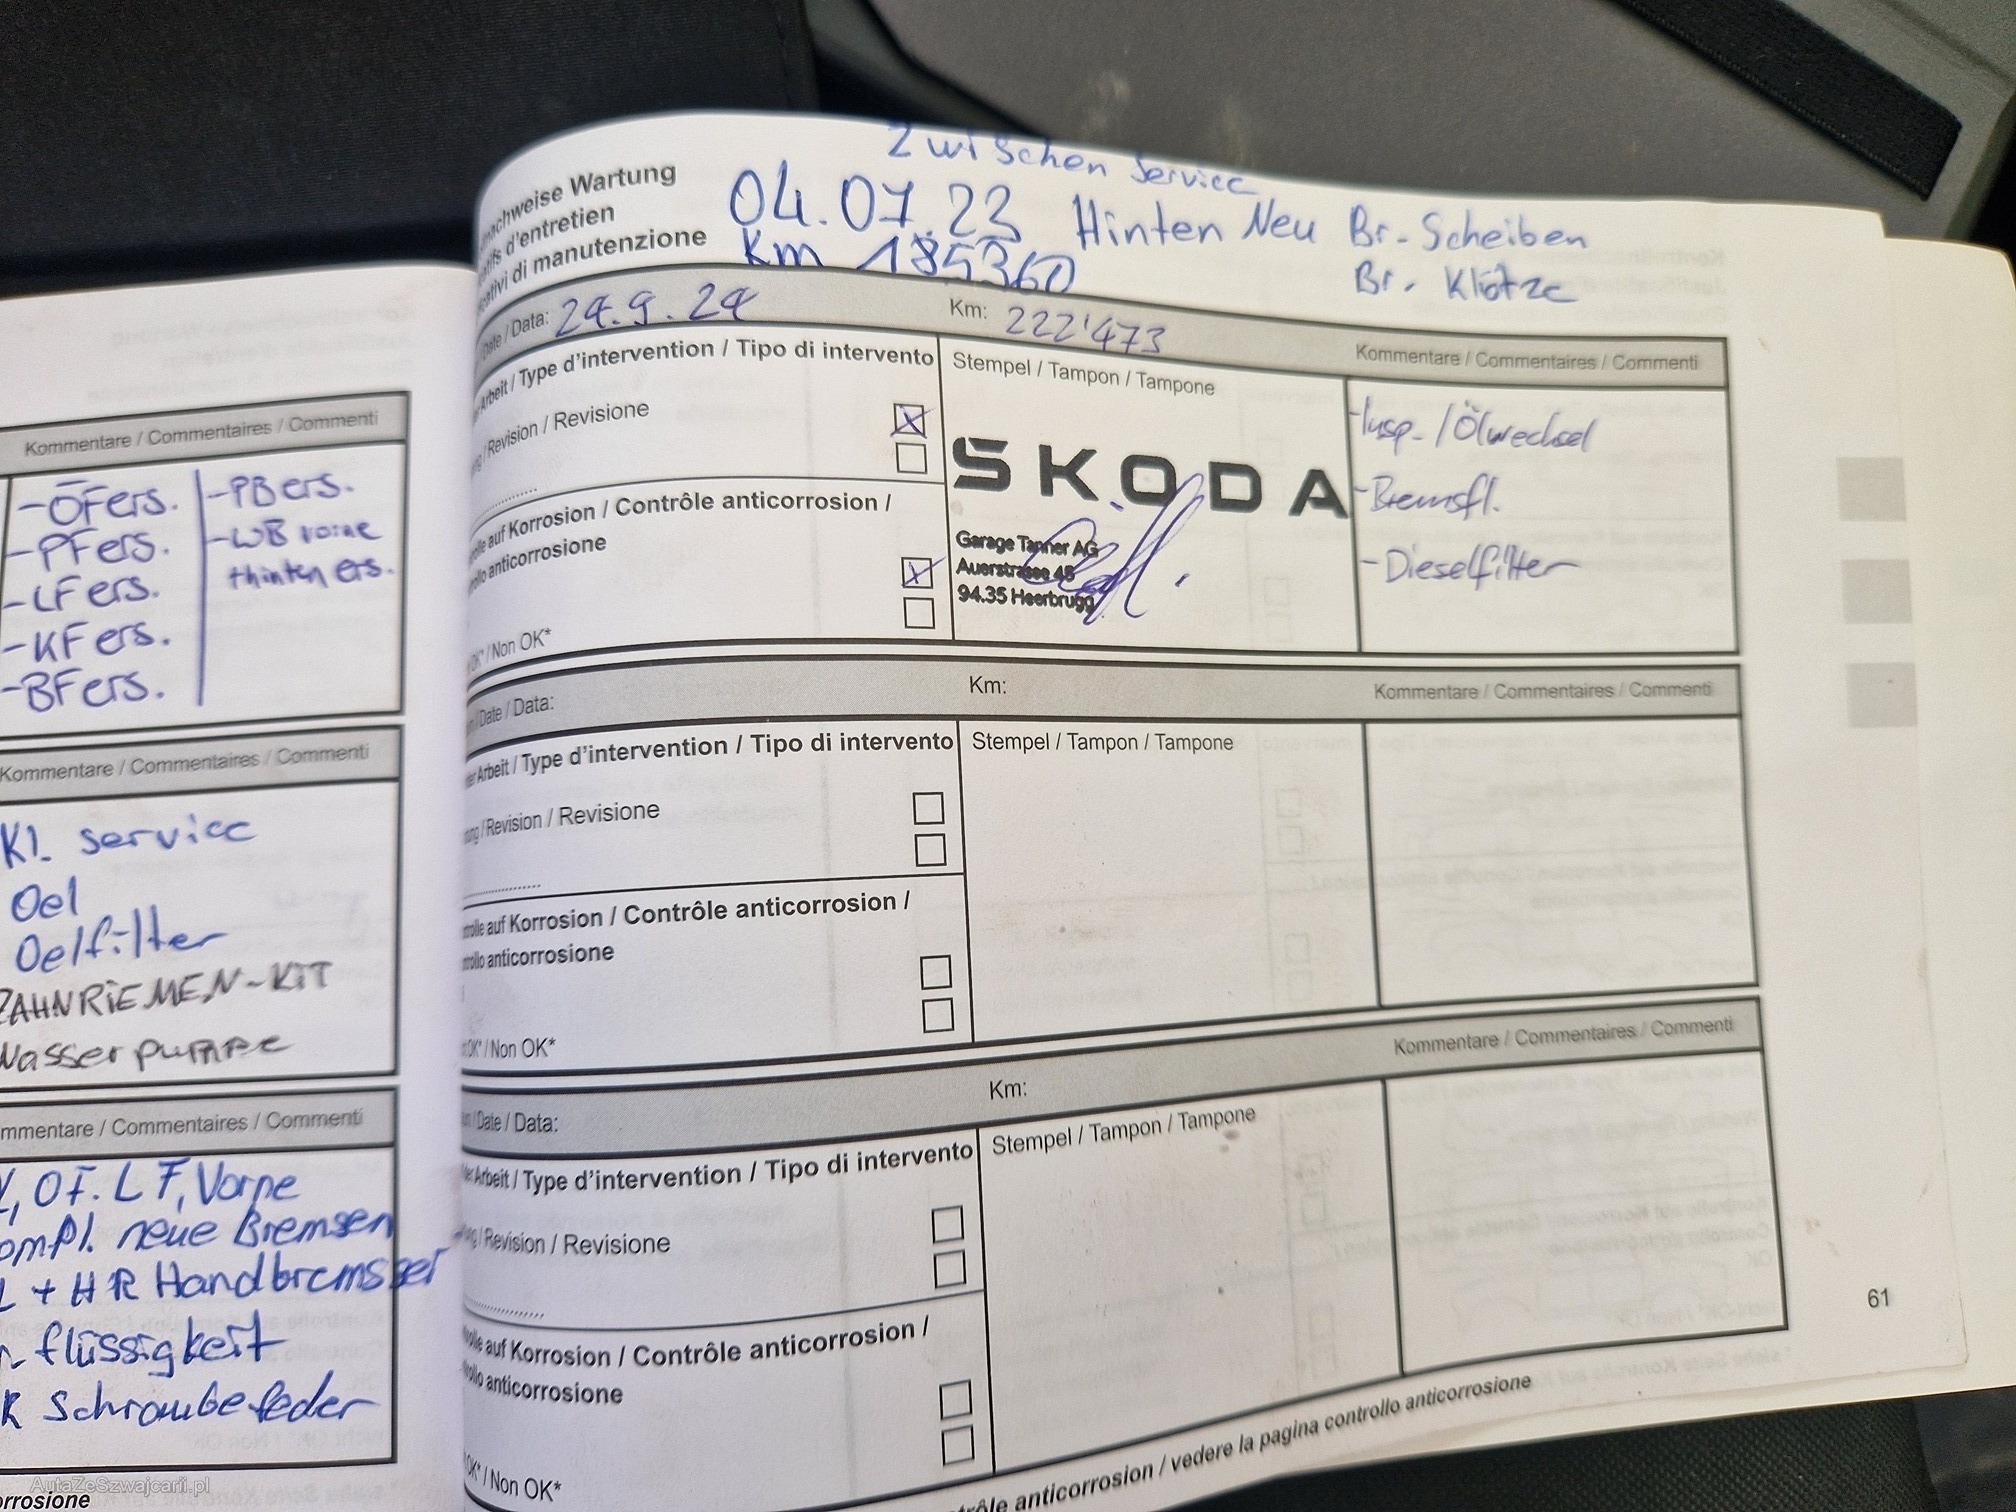 Kommentare / Commentaires / Commenti
-ÖFers.
-PFers.
-LFers.
-KFers.
-BFers.
-PBers.
-WB vorne
+hinten ers.
Kommentare / Commentaires / Commenti
Kl. service
Oel
Oelfilter
ZAHNRIEMEN-KIT
Wasserpumpe
mmentare / Commentaires / Commenti
, OF. LF, Vorne
ompl. neue Bremsen
+ HR Handbremsser
flüssigkeit
Schraubefeder
orrosione
AutaZeSzwajcarii.pl
Zwischen Service
04.07.23 Hinten Neu Br.-Scheiben
Km 185360 Br. Klötze
nachweise Wartung
d'entretien
di manutenzione
Date / Data: 24.9.24 Km: 222'473 Kommentare / Commentaires / Commenti
Arbeit / Type d'intervention / Tipo di intervento
Revision / Revisione
auf Korrosion / Contrôle anticorrosion /
anticorrosione
OK* / Non OK*
Stempel / Tampon / Tampone
SKODA
Garage Tanner AG
Auerstrasse 45
94.35 Heerbrugg
-Insp. / Ölwechsel
-Bremsfl.
-Dieselfilter
/ Date / Data: Km: Kommentare / Commentaires / Commenti
Arbeit / Type d'intervention / Tipo di intervento
Stempel / Tampon / Tampone
/ Revision / Revisione
auf Korrosion / Contrôle anticorrosion /
anticorrosione
OK* / Non OK*
/ Date / Data: Km: Kommentare / Commentaires / Commenti
Arbeit / Type d'intervention / Tipo di intervento
Stempel / Tampon / Tampone
/ Revision / Revisione
auf Korrosion / Contrôle anticorrosion /
anticorrosione
OK* / Non OK*
61
trôle anticorrosion / vedere la pagina controllo anticorrosione